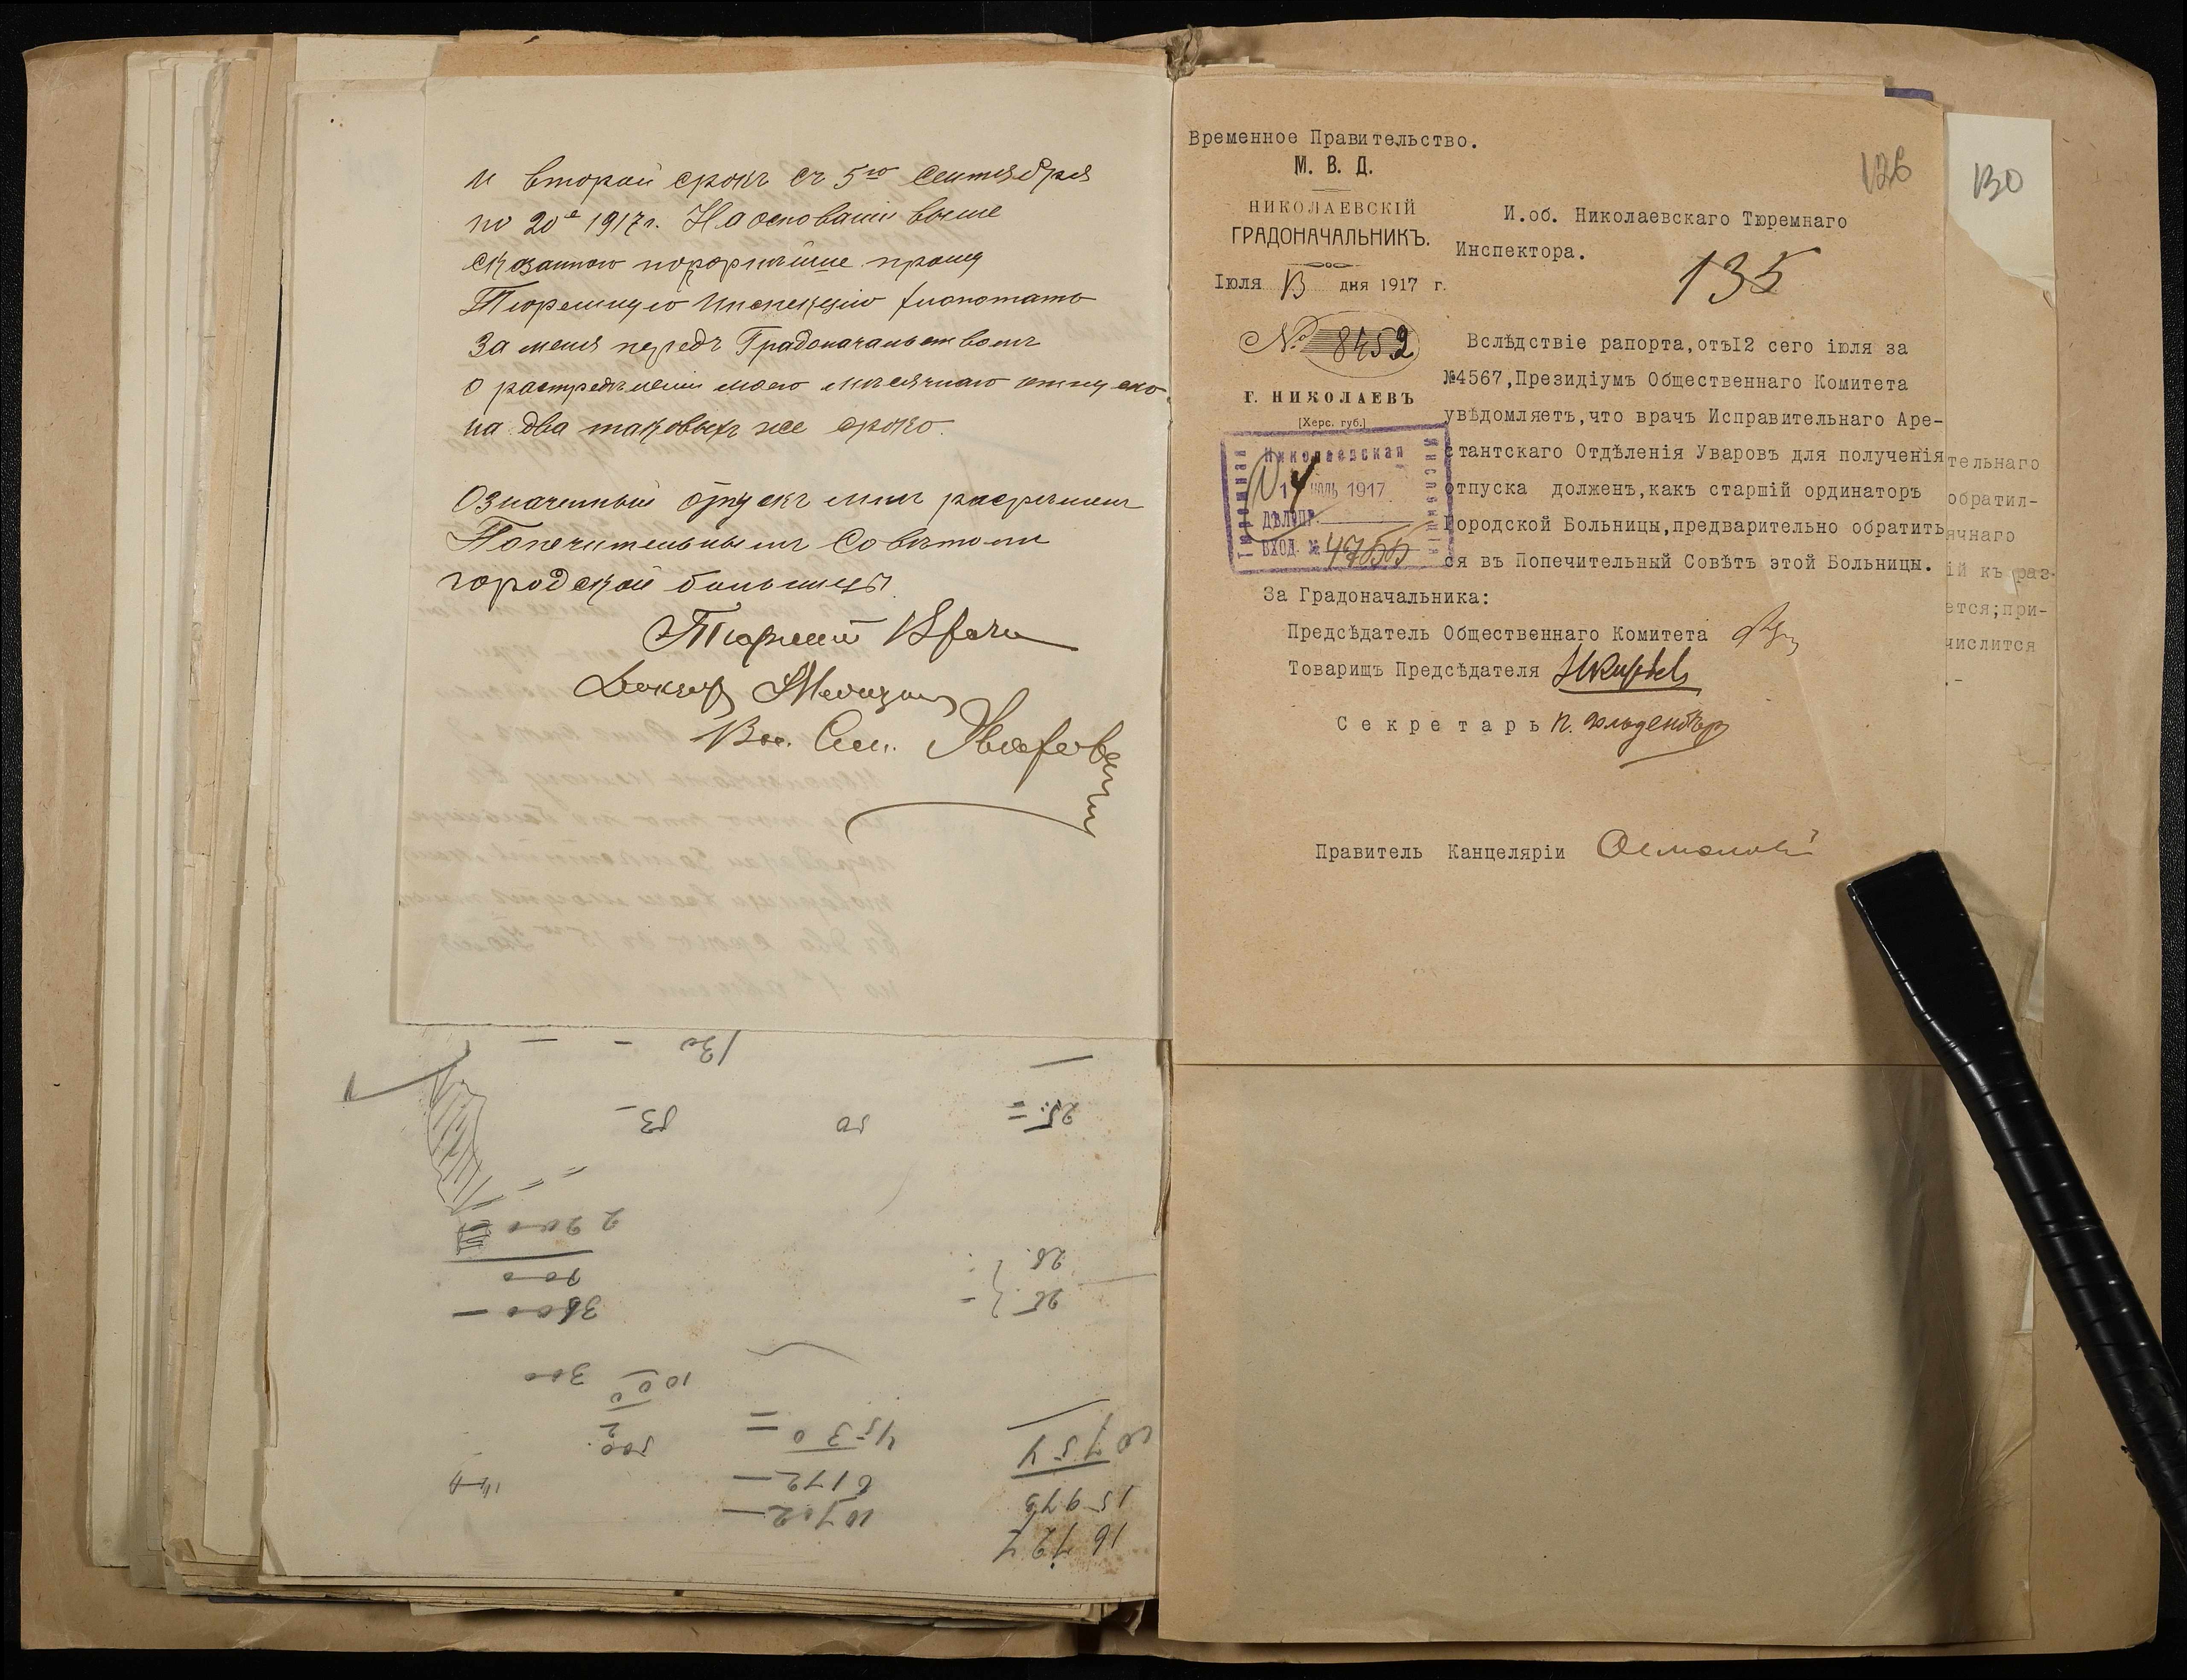 и второй срокъ съ 5го Сентября
по 20е 1917 г. На основаніи выше
сказанного покорнѣйше прошу
Тюремную Инспекцію
за меня передъ Градоначальствомъ
о распредѣленіи моего мѣсячнаго отпуска
на два таковыхъ же срока.
Означенный отпускъ мнѣ разрѣшенъ
Попечительнымъ Совѣтомъ
городской больницы.
Тюремный Врачъ
Докторъ Медицины
Вл. Сем. Уваровъ
130
25.= 50 53-
2700
900
3600 -
28.
25 -
300 1000
500
2
4530 =
6172 -
10702 -
754
15973
16727
Временное Правительство.
М. В. Д.
НИКОЛАЕВСКІЙ
ГРАДОНАЧАЛЬНИКЪ.
Іюля 13 дня 1917 г.
№ 8452
Г. НИКОЛАЕВЪ
[Херс. губ.]
Николаевская
Тюремная
Инспекція
14 ИЮЛЬ 1917
ДѢЛОПР.
ВХОД. № 4755
126
130
И.об. Николаевскаго Тюремнаго
Инспектора.
135
Вслѣдствіе рапорта,отъ12 сего іюля за
№4567,Президіумъ Общественнаго Комитета
увѣдомляетъ,что врачъ Исправительнаго Аре-
стантскаго Отдѣленія Уваровъ для полученія
отпуска долженъ,какъ старшій ординаторъ
Городской Больницы,предварительно обратить
ся въ Попечительный Совѣтъ этой Больницы.
За Градоначальника:
Предсѣдатель Общественнаго Комитета
Товарищъ Предсѣдателя
Секретарь П.
Правитель Канцеляріи
тельнаго
обратил-
ячнаго
ій къ раз-
ется;при-
числится
.-